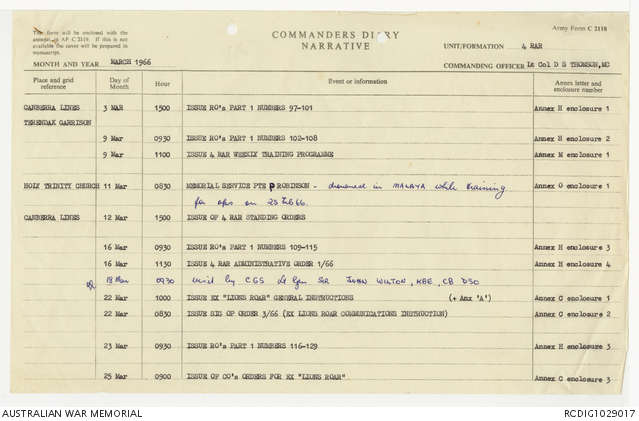 This form will be enclosed with the
annexes in AF C 2119. If this is not
available the cover will be prepared in
manuscript.
COMMANDERS DIARY
NARRATIVE
Army Form C 2118
UNIT/FORMATION 4 RAR
MONTH AND YEAR MARCH 1966
COMMANDING OFFICER Lt Col D S THOMSON, MC
Place and grid reference Day of Month Hour Event or information Annex letter and enclosure number
CANBERRA LINES 3 MAR 1500 ISSUE RO's PART 1 NUMBERS 97-101 Annex H enclosure 1
TERENDAK GARRISON
9 Mar 0930 ISSUE RO's PART 1 NUMBERS 102-108 Annex H enclosure 2
9 Mar 1100 ISSUE 4 RAR WEEKLY TRAINING PROGRAMME Annex M enclosure 1
HOLY TRINITY CHURCH 11 Mar 0830 MEMORIAL SERVICE PTE P ROBINSON - drowned in MALAYA while training Annex O enclosure 1
for ops on 25 Feb 66.
CANBERRA LINES 12 Mar 1500 ISSUE OF 4 RAR STANDING ORDERS
16 Mar 0930 ISSUE RO's PART 1 NUMBERS 109-115 Annex H enclosure 3
16 Mar 1130 ISSUE 4 RAR ADMINISTRATIVE ORDER 1/66 Annex H enclosure 4
18 Mar 0930 visit by CGS Lt Gen SIR JOHN WILTON, KBE, CB DSO
22 Mar 1000 ISSUE EX "LIONS ROAR" GENERAL INSTRUCTIONS (+ Anx 'A') Annex G enclosure 1
22 Mar 0830 ISSUE SIG OP ORDER 3/66 (EX LIONS ROAR COMMUNICATIONS INSTRUCTION) Annex G enclosure 2
23 Mar 0930 ISSUE RO's PART 1 NUMBERS 116-129 Annex H enclosure 3
25 Mar 0900 ISSUE OF CO's ORDERS FOR EX "LIONS ROAR" Annex G enclosure 3
AUSTRALIAN WAR MEMORIAL
RCDIG1029017